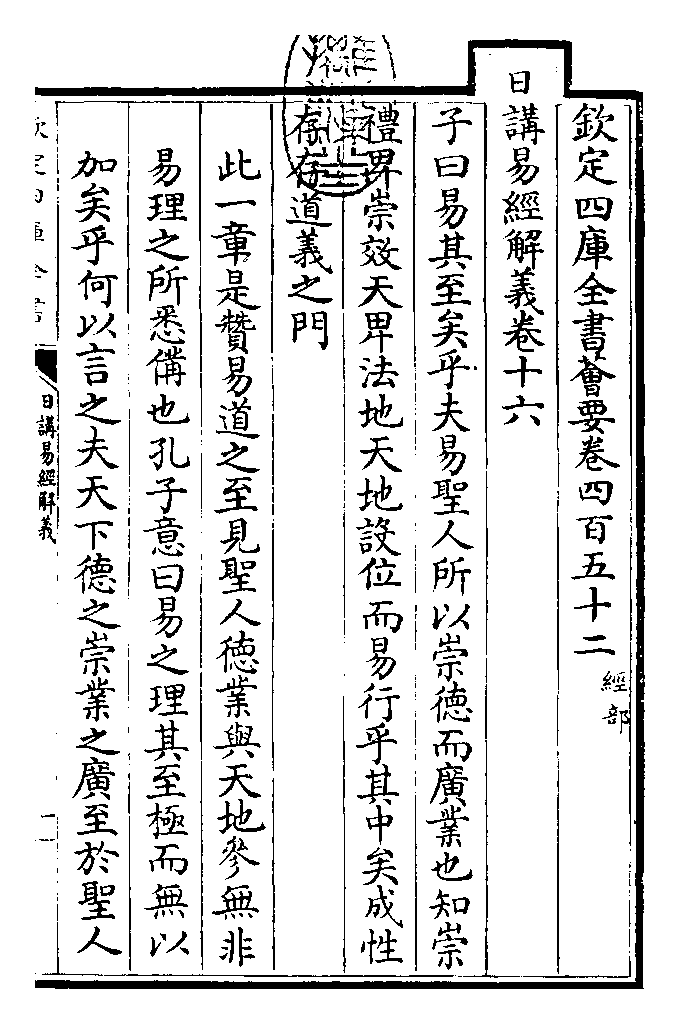 欽定四庫全書薈要卷四百五十二
經部
日講易經解義卷十六
子曰易其至矣乎夫易聖人所以崇德而廣業也知崇
禮卑崇效天卑法地天地設位而易行乎其中矣成性
存存道義之門
此一章是贊易道之至見聖人德業與天地參無非
易理之所悉備也孔子意曰易之理其至極而無以
加矣乎何以言之夫天下德之崇業之廣至於聖人
日講易經解義
一